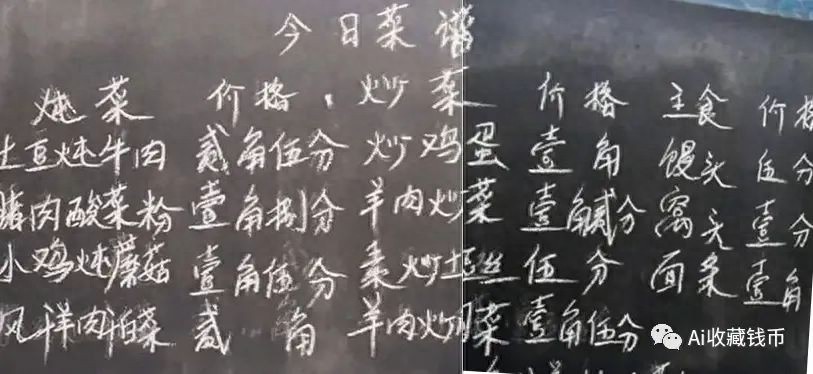 今日菜谱
炖菜 价格 炒菜 价格 主食 价格
土豆炖牛肉 贰角伍分 炒鸡蛋 壹角 馒头 伍分
猪肉酸菜粉 壹角捌分 羊肉炒菜 壹角贰分 窝头 壹分
小鸡炖蘑菇 壹角伍分 素炒土豆丝 伍分 面条 壹角
风洋肉白菜 贰角 羊肉炒菜 壹角伍分
Ai收藏钱币